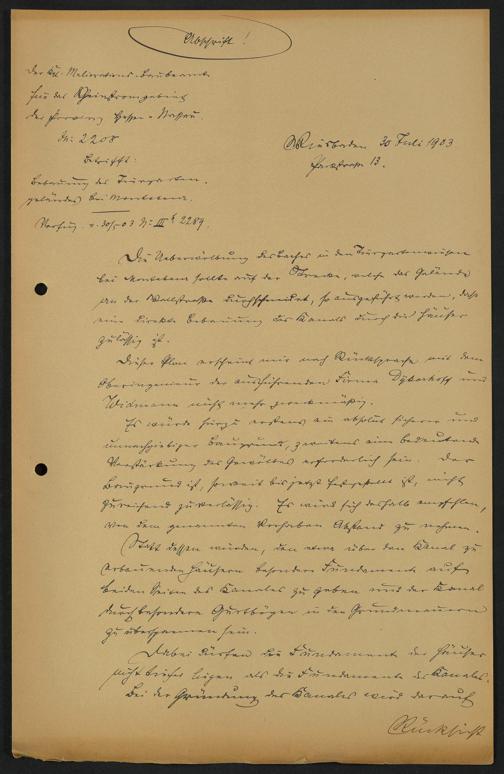 Abschrift!
Der Kgl. Meliorations-Baubeamte
für das Rheinstromgebiet
der Provinz Hessen-Nassau.
Nr. 2208
Wiesbaden 30 Juli 1903
Parkstraße 13.
Betrifft:
Bebauung des Turgarten-
geländes bei Montabaur.
Verfüg. v. 30/5 03 Nr. III 2289.
Die Ueberwölbung des Baches in den Turgartenwiesen
bei Montabaur sollte auf der Strecke, welche das Gelände
an der Wallstraße durchschneidet, so ausgeführt werden, daß
eine direkte Bebauung des Kanals durch die Häuser
zulässig ist.
Dieser Plan erscheint mir nach Rücksprache mit dem
Oberingenieur der ausführenden Firma Dykerhoff und
Widmann nicht mehr zweckmäßig.
Es würde hierzu erstens ein absolut sicherer und
unnachgiebiger Baugrund, zweitens eine bedeutende
Verstärkung des Gewölbes erforderlich sein. Der
Baugrund ist, soweit bis jetzt festgestellt ist, nicht
zureichend zuverlässig. Es wird sich deshalb empfehlen,
von dem genannten Vorhaben Abstand zu nehmen.
Statt dessen würden, den etwa über den Kanal zu
erbauenden Häusern besondere Fundamente auf
beiden Seiten des Kanales zu geben und der Kanal
durch besondere Gurtbögen in den Grundmauern
zu überspannen sein.
Dabei dürfen die Fundamente der Häuser
nicht tiefer liegen als die Fundamente des Kanales.
Bei der Gründung des Kanales wird darauf
Rücksicht